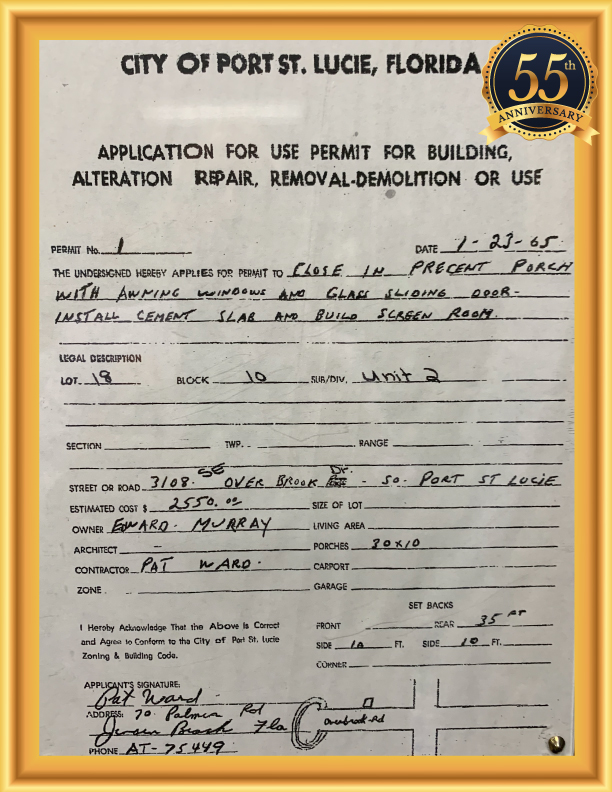 CITY OF PORT ST. LUCIE, FLORIDA
55th
ANNIVERSARY
APPLICATION FOR USE PERMIT FOR BUILDING,
ALTERATION REPAIR, REMOVAL-DEMOLITION OR USE
PERMIT No. 1 DATE 1-23-65
THE UNDERSIGNED HEREBY APPLIES FOR PERMIT TO CLOSE IN PRECENT PORCH
WITH AWNING WINDOWS AND GLASS SLIDING DOOR-
INSTALL CEMENT SLAB AND BUILD SCREEN ROOM.
LEGAL DESCRIPTION
LOT. 18 BLOCK 10 SUB/DIV. Unit 2
SECTION TWP. RANGE
STREET OR ROAD 3108. SE OVER BROOK Dr. - SO. PORT ST LUCIE
ESTIMATED COST $ 2550.00 SIZE OF LOT
OWNER EDWARD. MURRAY LIVING AREA
ARCHITECT - PORCHES 30x10
CONTRACTOR PAT WARD. CARPORT
ZONE. GARAGE
SET BACKS
I Hereby Acknowledge That the Above is Correct FRONT REAR 35 FT
and Agree to Conform to the City of Port St. Lucie SIDE 10 FT. SIDE 10 FT.
Zoning & Building Code. CORNER
APPLICANT'S SIGNATURE:
Pat Ward
ADDRESS: 70 Palmer Rd
Jensen Beach Fla
Overbrook Rd
PHONE AT-75449